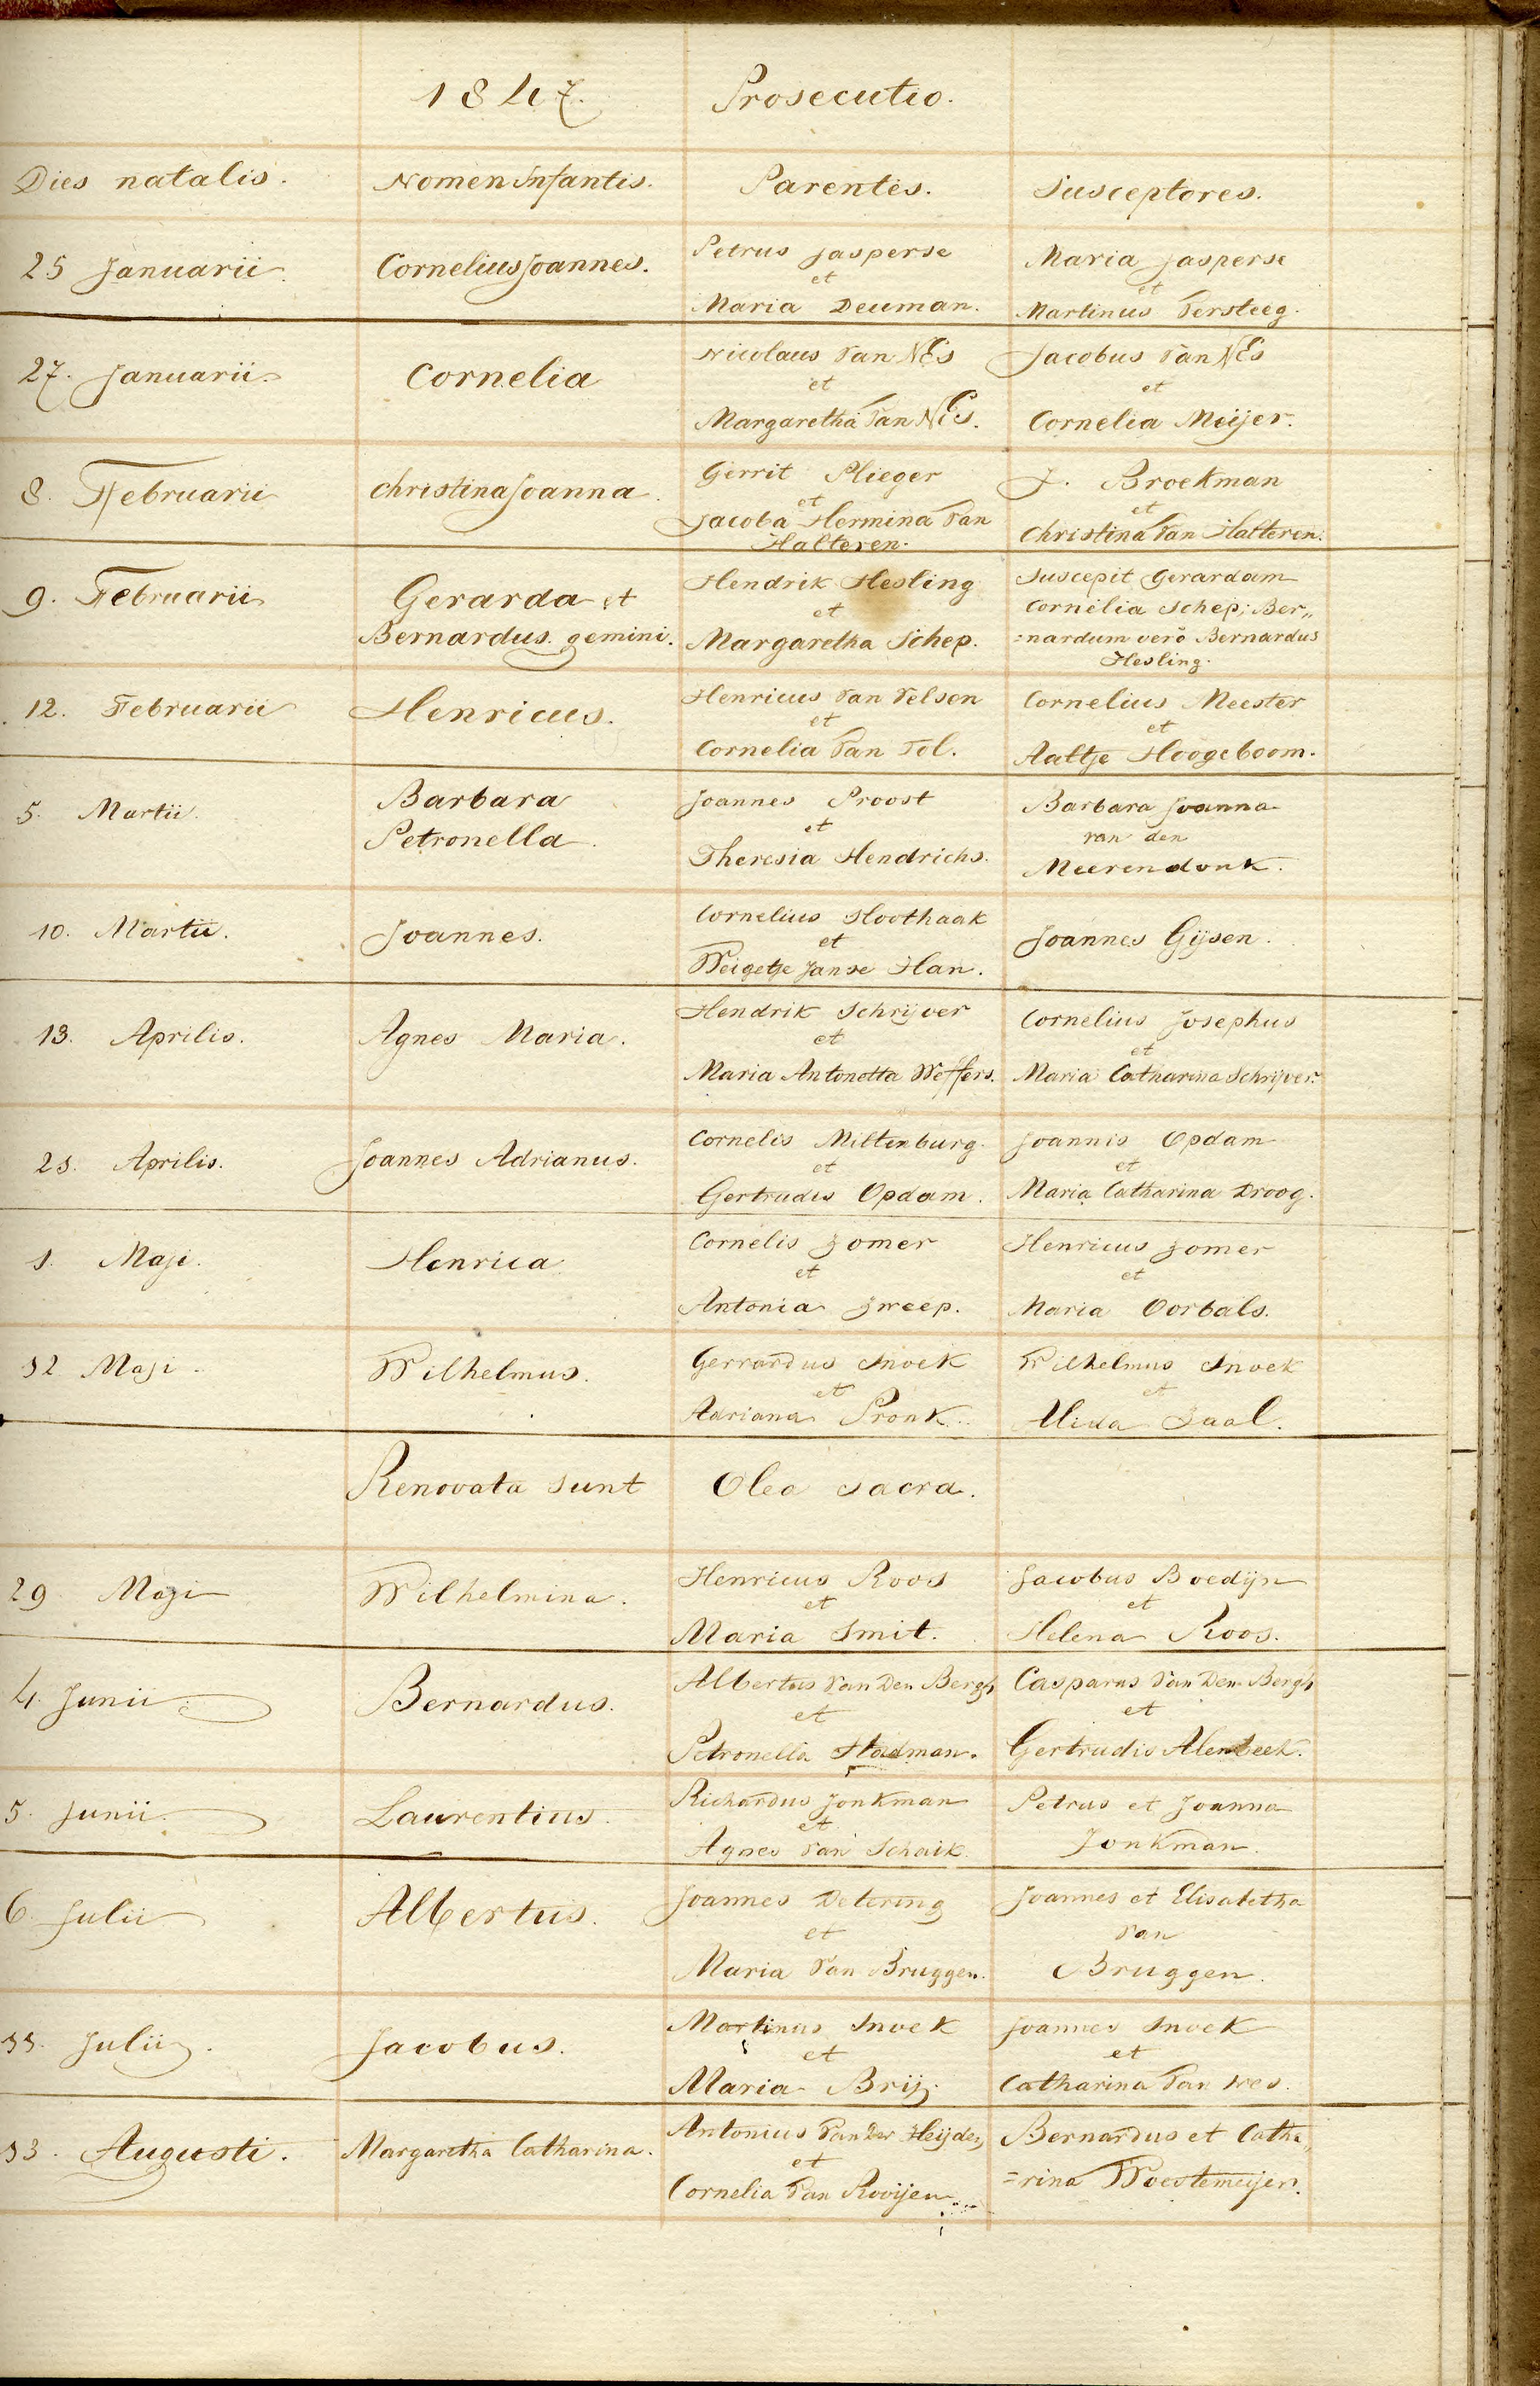 1847. Prosecutio.
Dies natalis. Nomen Infantis. Parentes. Susceptores.
25 Januarii. Cornelius Joannes. Petrus Jasperse Maria Jasperse
et et
Maria Deuman. Martinus Versteeg.
27. Januarii. Cornelia Nicolaus Van Nes Jacobus Van Nes
et et
Margaretha Van Nes. Cornelia Meijer.
8. Februarii Christina Joanna. Gerrit Plieger J. Broekman
et et
Jacoba Hermina Van Christina Van Halteren.
Halteren.
9. Februarii Gerarda et Hendrik Hesling Suscepit Gerardam
et Cornelia Schep; Ber„
Bernardus gemini. Margaretha Schep. =nardum vero Bernardus
Hesling.
12. Februarii Henricus. Henricus Van Velsen Cornelius Meester
et et
Cornelia Van Tol. Aaltje Hoogeboom.
5. Martii. Barbara Joannes Proost Barbara Joanna
Petronella. et van den
Theresia Hendrichs. Meerendonk.
10. Martii. Joannes. Cornelius Hoothaak Joannes Gijsen.
et
Weigetje Janse Han.
13. Aprilis. Agnes Maria. Hendrik Schrijver Cornelius Josephus
et et
Maria Antonetta Weffers. Maria Catharina Schrijver.
21. Aprilis. Joannes Adrianus. Cornelis Miltenburg. Joannis Opdam
et et
Gertrudis Opdam. Maria Catharina Droog.
1. Maji. Henrica Cornelis Zomer Henricus Zomer
et et
Antonia Zweep. Maria Oorbals.
12 Maji. Wilhelmus. Gerrardus Snoek Wilhelmus Snoek
et et
Adriana Pronk. Alida Zaal.
Renovata sunt Olea sacra.
29 Maji Wilhelmina. Henricus Roos Jacobus Boedijn
et et
Maria Smit. Helena Roos.
4. Junii Bernardus. Albertus Van Den Bergh Casparus Van Den Bergh
et et
Petronella Stadman. Gertrudis Alenbeek.
5. Junii. Laurentius. Richardus Jonkman Petrus et Joanna
et
Agnes Van Schaik. Jonkman.
6. Julii Albertus. Joannes Detering Joannes et Elisabetha
et Van
Maria Van Bruggen. Bruggen.
11. Julii. Jacobus. Martinus Snoek Joannes Snoek
et et
Maria Brij. Catharina Van
13. Augusti. Margaretha Catharina. Antonius Van Der Heijden Bernardus et Catha„
et =rina Woestemeijer.
Cornelia Van Rooijen